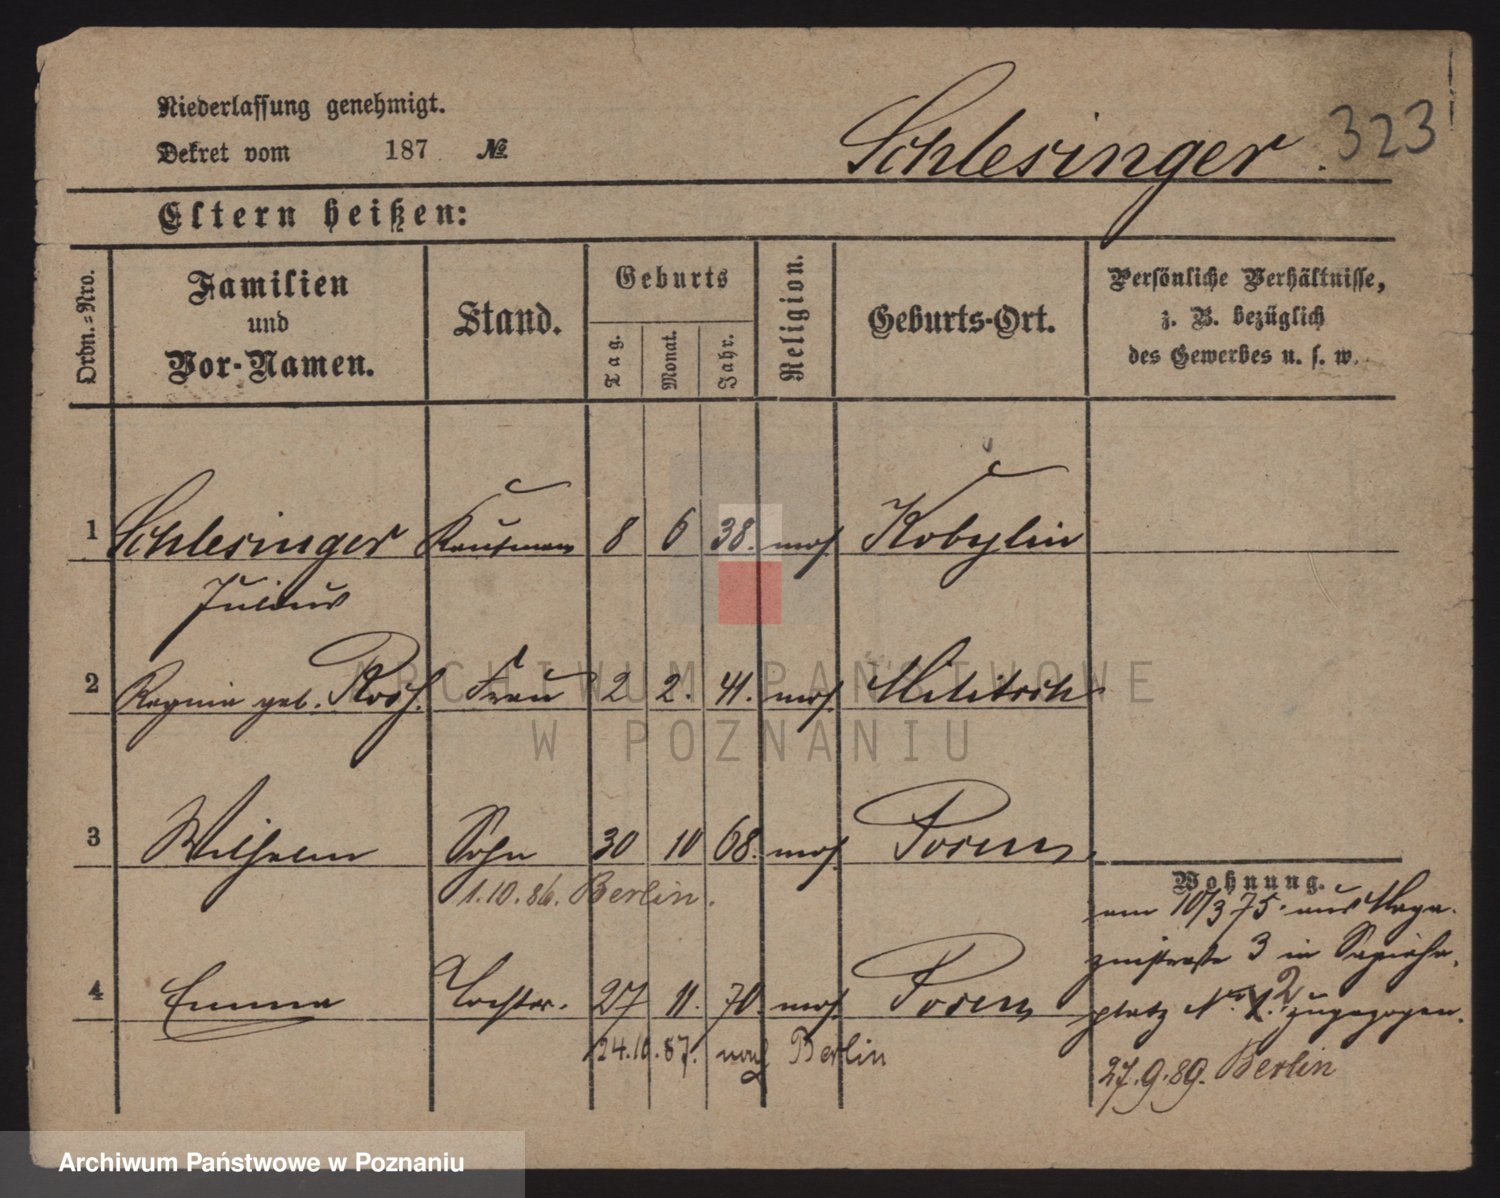 Niederlassung genehmigt.
Dekret vom 187 №
Schlesinger. 323
Eltern heißen:
Ordn.-Nro.
Familien und Vor-Namen.
Stand.
Geburts
Tag. Monat. Jahr.
Religion.
Geburts-Ort.
Persönliche Verhältnisse, z. B. bezüglich des Gewerbes u. s. w.
1 Schlesinger Kaufmann 8 6 38. mos. Kobylin
Julius
2 geb. Frau 2 2. 41. mos. Militsch
3 Wilhelm Sohn 30 10 68. mos. Posen
1.10.86. Berlin.
4 Emma Tochter. 27 11. 70. mos. Posen
24.10.87. nach Berlin
Wohnung.
am 10/3 75. aus Maga-
zinstraße 3 in Sapieha-
platz No 2 zugezogen.
27.9.89. Berlin
ARCHIWUM PAŃSTWOWE
W POZNANIU
Archiwum Państwowe w Poznaniu